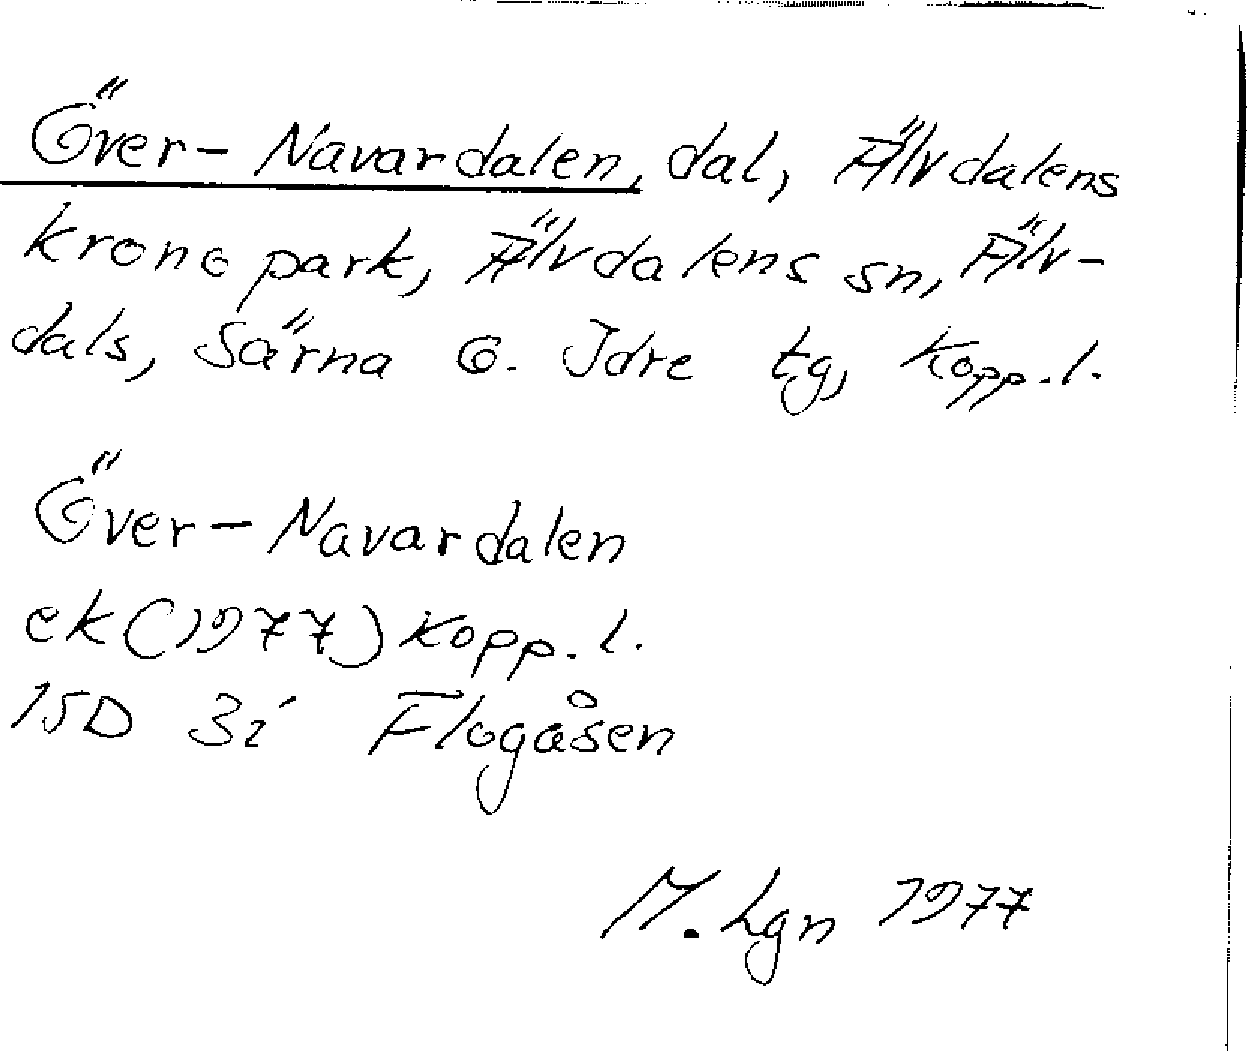 Över-Navardalen, dal, Älvdalens
kronopark, Älvdalens sn, Älv-
dals, Särna o. Idre tg, Kopp.l.
Över-Navardalen
ek(1977) Kopp.l.
15D 3i Flogåsen
M. Lgn 1977